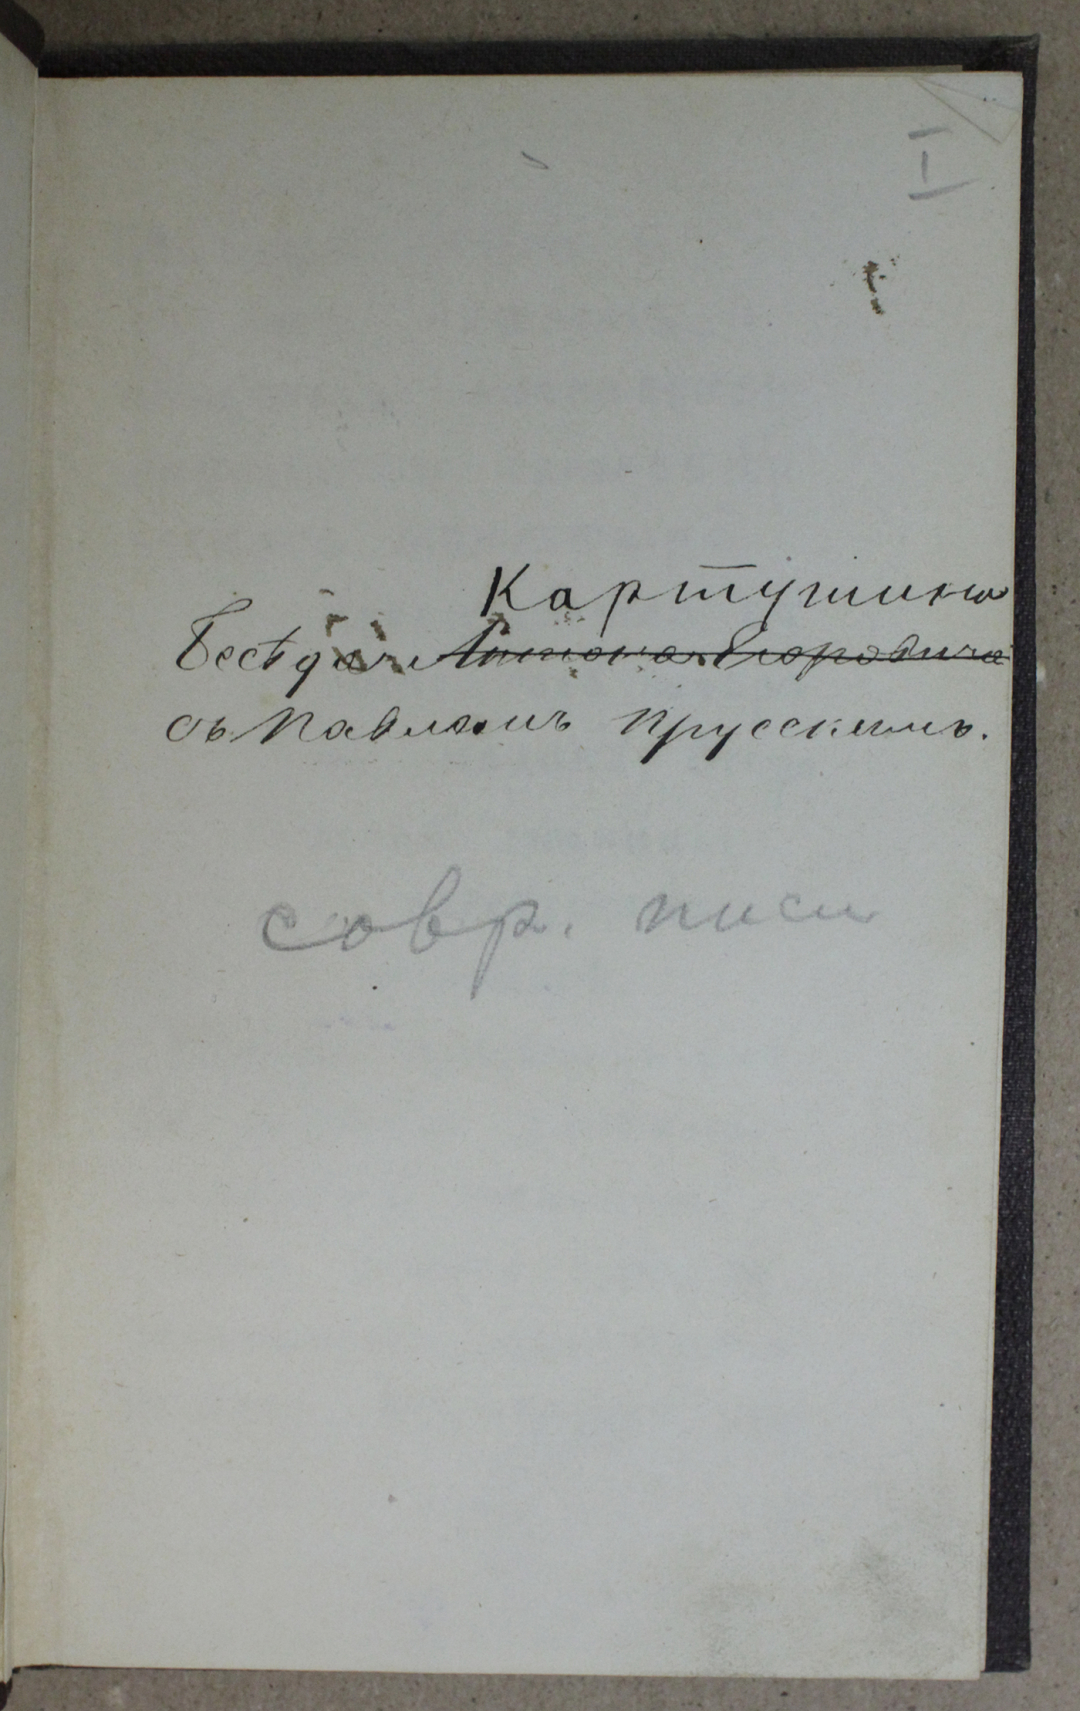 I
Картушина
Бесѣда Антона Егоровича
съ Павломъ Прусскимъ.
совр. писи